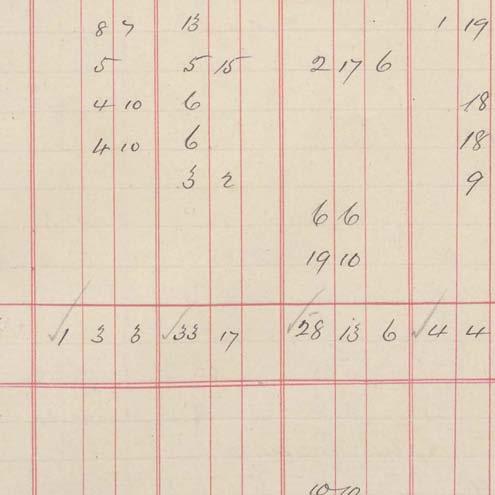 8 7 13 1 19
5 5 15 2 17 6
4 10 6 18
4 10 6 18
3 2 9
6 6
19 10
✓1 3 3 ✓33 17 ✓28 13 6 ✓4 4